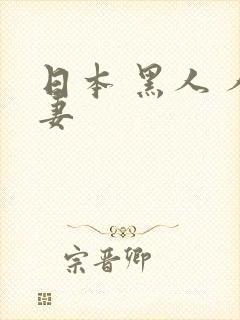 日本 黑人 人
妻
宗晋卿